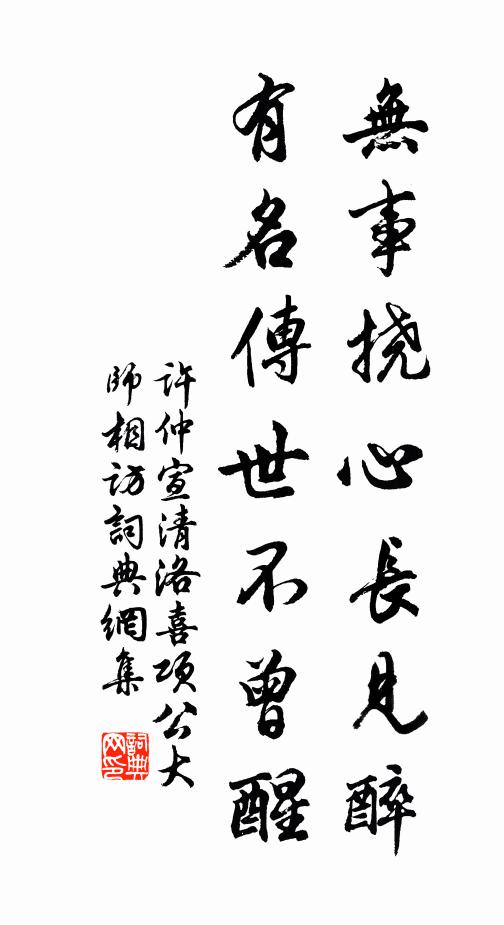 無事撓心長見醉
有名傳世不曾醒
許仲宣清洛喜項公大
師相訪詞典網集
詞典
网印